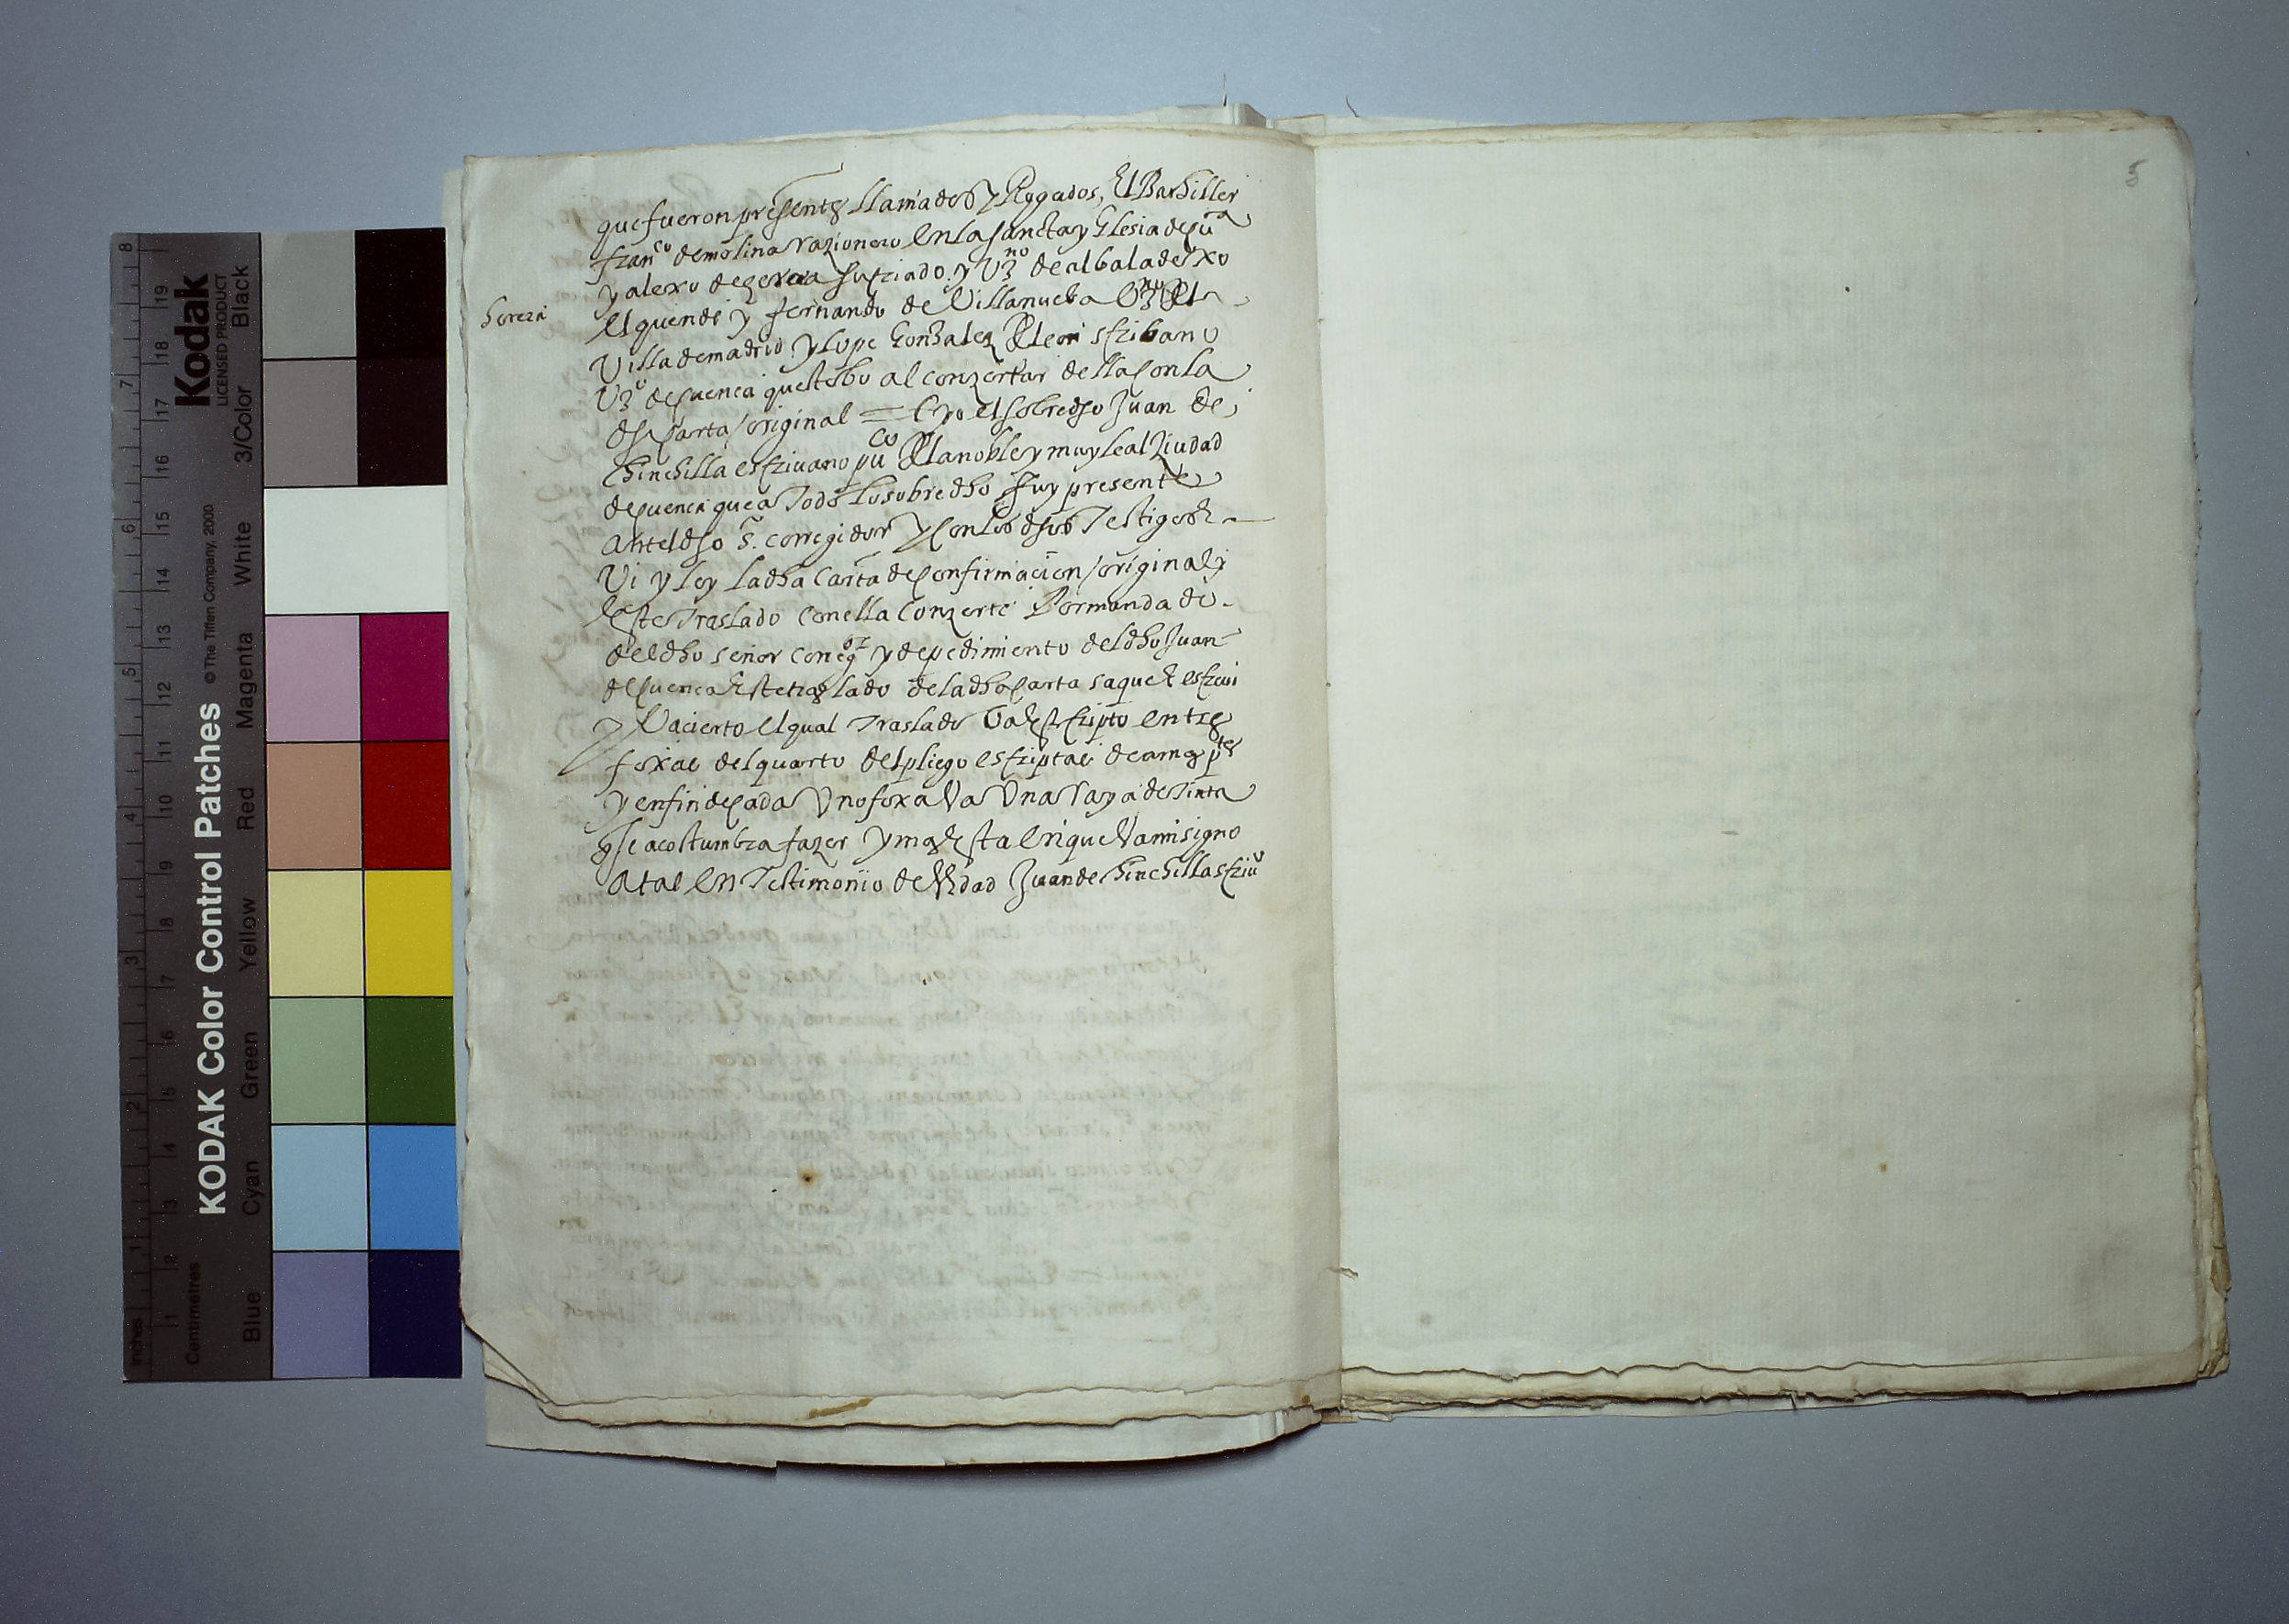 que fueron presentes llamados y Rogados, El Bachiller
franco de molina razionero en la sancta yglesia de cua
y alexo de gerena jurado y vzno de albaladexo
hereza
el quende y fernando de Villanueba vzno de la
Villa de madrid y lope gonzalez de leon escribano
vzo de cuenca questobo al conzertar della con la
dha carta original = E yo el sobredho Juan de
chinchilla escrivano puco de la noble y muy leal ziudad
de cuenca que a todo lo sobredho fuy presente
ante el dho s. corregidor y con los dhos testigos E
Vi y ley la dha Carta de confirmacion original y
este traslado con ella conzerte Por manda do
del dho señor correg.or y de pedimiento del dho Juan
de cuenca este traslado de la dha carta saque E escrivi
y Va cierto el qual traslado va escripto en tres
foxas del quarto del pliego escriptas de amas ptes
y en fin de cada Vna foxa Va Vna raya de tinta
q se acostumbra fazer y mas esta en que Va mi signo
a tal En Testimonio de Verdad Juan de chinchilla scrivo
5
KODAK Color Control Patches © The Tiffen Company, 2000
Kodak
LICENSED PRODUCT
Blue Cyan Green Yellow Red Magenta White 3/Color Black
Inches 1 2 3 4 5 6 7 8
Centimetres 1 2 3 4 5 6 7 8 9 10 11 12 13 14 15 16 17 18 19